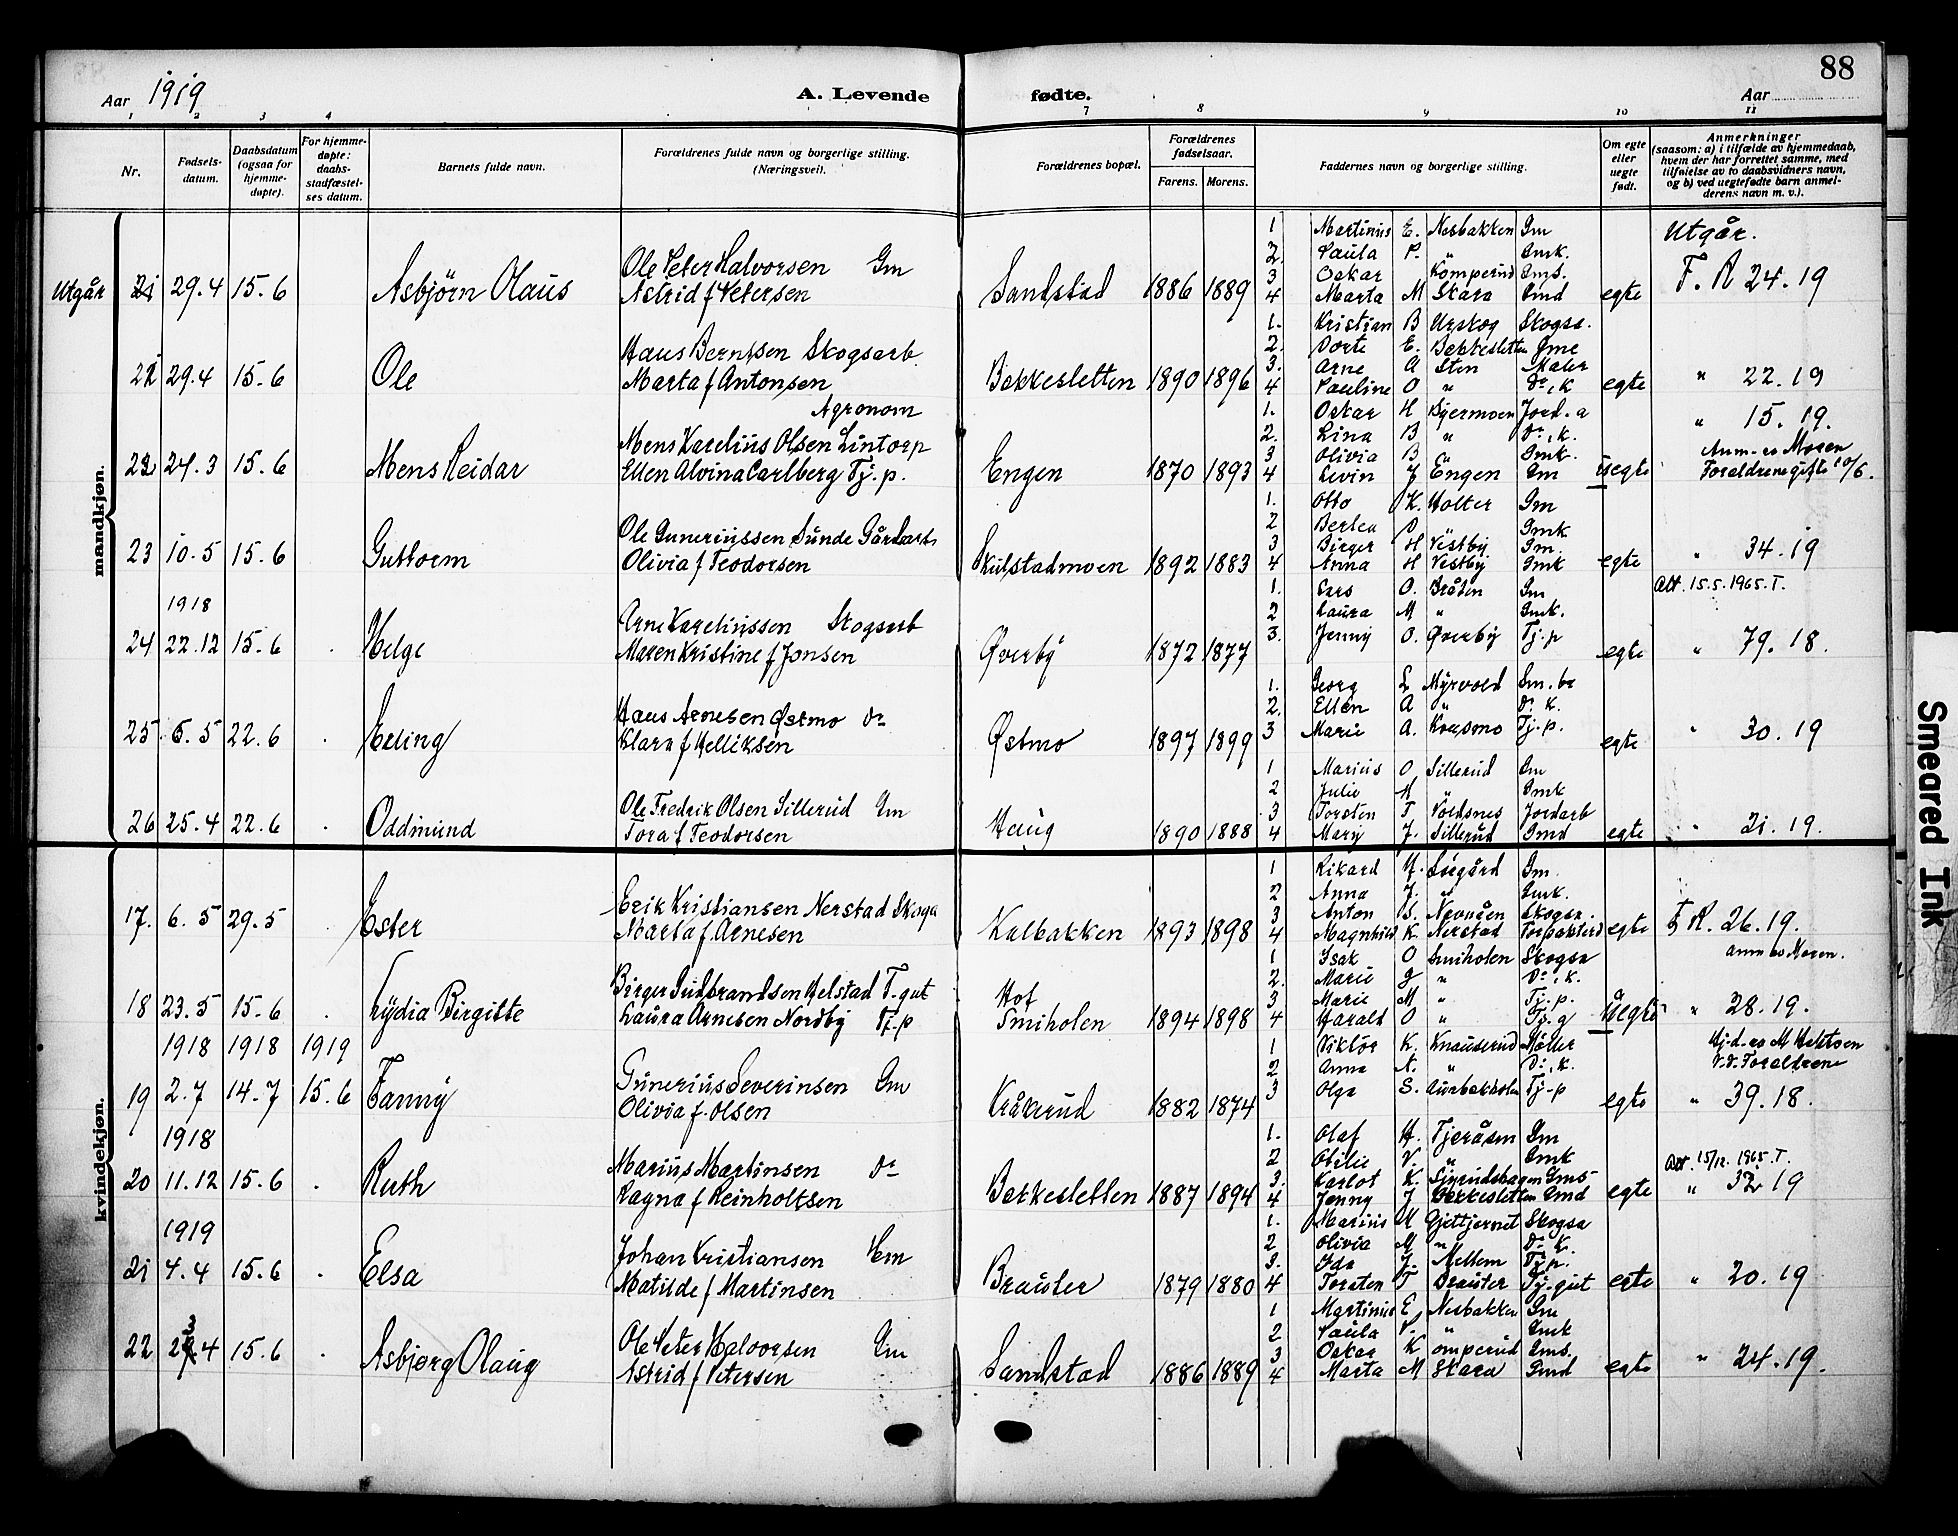 88
Aar 1919
A. Levende fødte.
Aar
1 2 3 4 7 8 9 10 11
Nr.
Fødsels-datum.
Daabsdatum (ogsaa for hjemme-døpte).
For hjemme-døpte: daabs-stadfæstel-ses datum.
Barnets fulde navn.
Forældrenes fulde navn og borgerlige stilling. (Næringsvei).
Forældrenes bopæl.
Forældrenes fødselsaar.
Farens. Morens.
Faddernes navn og borgerlige stilling.
Om egte eller uegte født.
Anmerkninger (saasom: a) i tilfælde av hjemmedaab, hvem der har forrettet samme, med tilføielse av to daabsvidners navn, og b) ved uegtefødte barn anmel-derens navn m. v.).
mandkjøn.
Utgår 21 29.4 15.6 Asbjørn Olaus
Ole Peter Halvorsen Gm
Astrid f Petersen
Sandstad 1886 1889
1 Martinus E. Nesbakken Gm
2. Paula P. " Gmk.
3 Oskar Komperud Gms.
4 Marta M Skara Gmd
egte
Utgår.
F. R 24.19
22 29.4 15.6 Ole
Hans Berntsen Skogsarb
Marta f Antonsen
Bekkesletten 1890 1896
1. Kristian B Urskog Skogsa.
2. Dorte E. Bekkesletten Gme
3. Arne A Sten Maler
4 Pauline O " Do. K
egte
" 22.19
22 24.3 15.6 Mens Reidar
Agronom
Mens Karelius Olsen Lintorp
Ellen Alvina Carlberg Tj.p.
Engen 1870 1893
1. Oskar H Bjermoen Jord.a
2. Lina B " Do. k.
3 Olivia B " Gmk.
4 Levin J Engen Gm
uegte
" 15.19.
Anm. av Moren
Foraldrene gifte 10/6.
23 10.5 15.6 Guttorm
Ole Guneriussen Sunde Gårdarb.
Olivia f Teodorsen
Skulstadmoen 1892 1883
1. Otto K. Holter Gm
2 Bertea D " Gmk
3 Birger H Vestby Gm
4 Anna H Vestby Gmk
egte
" 34.19
1918
24 22.12 15.6 Helge
Arne Kareliussen Skogsarb
Maren Kristine f Jonsen
Øverby 1872 1877
1. Lars O. Bråten Gm
2 Laura M " Gmk.
3. Jenny O. Øverby Tj.p
egte
Att. 15.5.1965.T.
" 79.18.
25 6.5 22.6 Erling
Hans Arnesen Østmo Do
Klara f Helliksen
Østmo 1897 1899
1. Georg L Myrvold Gm.br
2. Ellen A " Do. K.
3 Marie A. Korsmo Tj.p.
egte
" 30.19
26 25.4 22.6 Oddmund
Ole Fredrik Olsen Sillerud Gm
Tora f Teodorsen
Haug 1890 1888
1 Marius O Sillerud Gm
2 Julie M " Gmk
3 Torsten T Voldsnes Jordarb
4 Mary J. Sillerud Gmd
egte
" 21.19.
kvindekjøn.
17. 6.5 29.5 Ester
Erik Kristiansen Nerstad Skoga
Marta f. Arnesen
Kalbakken 1893 1898
1 Rikard H. Sørgård Gm.
2 Anna J. " Gmk.
3 Anton S. Skogsa.
4 Magnhild K. Nerstad
egte
F R. 26.19.
18 23.5 15.6 Lydia Birgitte
Birger Gudbrandsen Helstad T.gut
Laura Arnesen Nordby Tj.p
Hof
Smiholen 1894 1898
1 Isak O Smiholen Skogsa
2. Marie G " Do. k.
3 Marie M " Tj.p.
4 Harald O " Tj.g
uegte
anm av Moren.
" 28.19.
1918 1918 1919
19 2.7 14.7 15.6 Fanny
Gunerius Severinsen Gm
Olivia f. Olsen
Kråkrud 1882 1874
1 Viktor K. Knauserud Møller
2 Anna N. " Do. K.
3 Olga S. Aurbakholm Tj-p
egte
Hj-d. av M Mettsen
V.V. Foraldrene
" 39.18.
1918
20 11.12 15.6 Ruth
Marius Martinsen Do
Ragna f Reinholtsen
Bekkesletten 1887 1894
1. Olaf H. Tjeråsen Gm
2 Otilie V. " Gmk
3. Karlot K. Gms
4 Jenny J Bekkesletten Gmd
egte
Att. 15/12. 1965.T.
" 32.19
1919
21 4.4 15.6 Elsa
Johan Kristiansen Hm
Matilde f Martinsen
Brauter 1879 1880
1. Marius M Gjettjernet Skogsa
2 Olivia M " Do K.
3. Ida J. Mellem Tj.p.
4 Torsten T Brauter Tj.gut
egte
" 20.19
22 23.4 15.6 Asbjørg Olaug
Ole Peter Halvorsen Gm
Astrid f Petersen
Sandstad 1886 1889
1 Martinus E. Nesbakken Gm
2 Paula P. " Gmk
3 Oskar Komperud Gms.
4 Marta M Skara Gmd
egte
" 24.19.
Smeared Ink